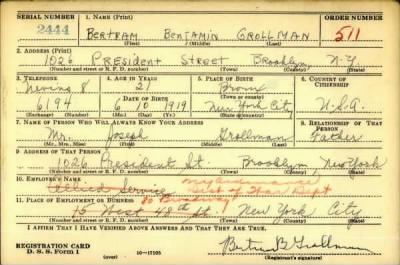 SERIAL NUMBER 1. NAME (Print) ORDER NUMBER
2444 BERTRAM BENJAMIN GROLLMAN 511
(First) (Middle) (Last)
2. ADDRESS (Print)
1026 PRESIDENT STREET Brooklyn, N.Y.
(Number and street or R. F. D. number) (Town) (County) (State)
3. TELEPHONE 4. AGE IN YEARS 5. PLACE OF BIRTH 6. COUNTRY OF CITIZENSHIP
Nevins 8 21 Bronx
DATE OF BIRTH (Town or county)
6194 6 10 1919 New York City U.S.A.
(Exchange) (Number) (Mo.) (Day) (Yr.) (State or country)
7. NAME OF PERSON WHO WILL ALWAYS KNOW YOUR ADDRESS 8. RELATIONSHIP OF THAT PERSON
Mr. Joseph Grollman Father
(Mr., Mrs., Miss) (First) (Middle) (Last)
9. ADDRESS OF THAT PERSON
1026 President St. Brooklyn, New York
(Number and street or R. F. D. number) (Town) (County) (State)
10. EMPLOYER'S NAME
Allied Service
11. PLACE OF EMPLOYMENT OR BUSINESS 80 Broadway
15 West 48th St. New York City
(Number and street or R. F. D. number) (Town) (County) (State)
I AFFIRM THAT I HAVE VERIFIED ABOVE ANSWERS AND THAT THEY ARE TRUE.
REGISTRATION CARD
D. S. S. Form 1 (over) 16—17105 Bertram B. Grollman
(Registrant's signature)